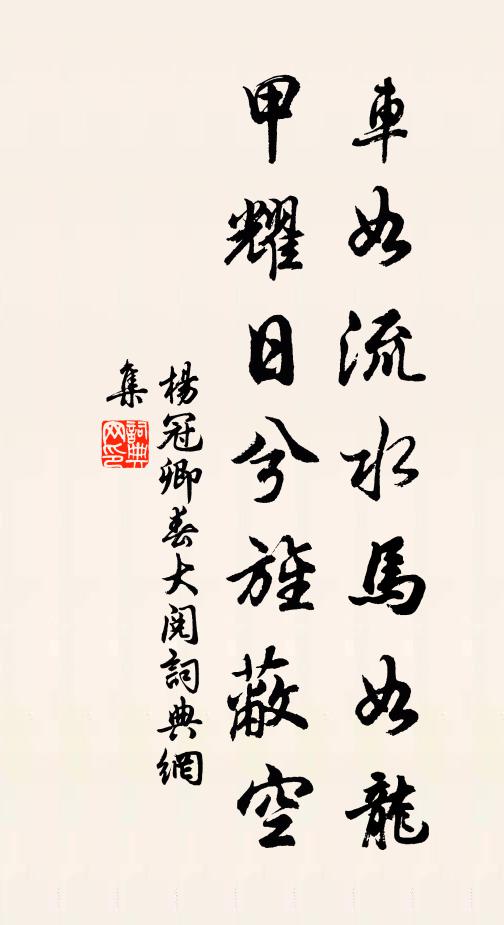 車如流水馬如龍
甲耀日兮旌蔽空
楊冠卿春大閱詞典網
集
詞典网印